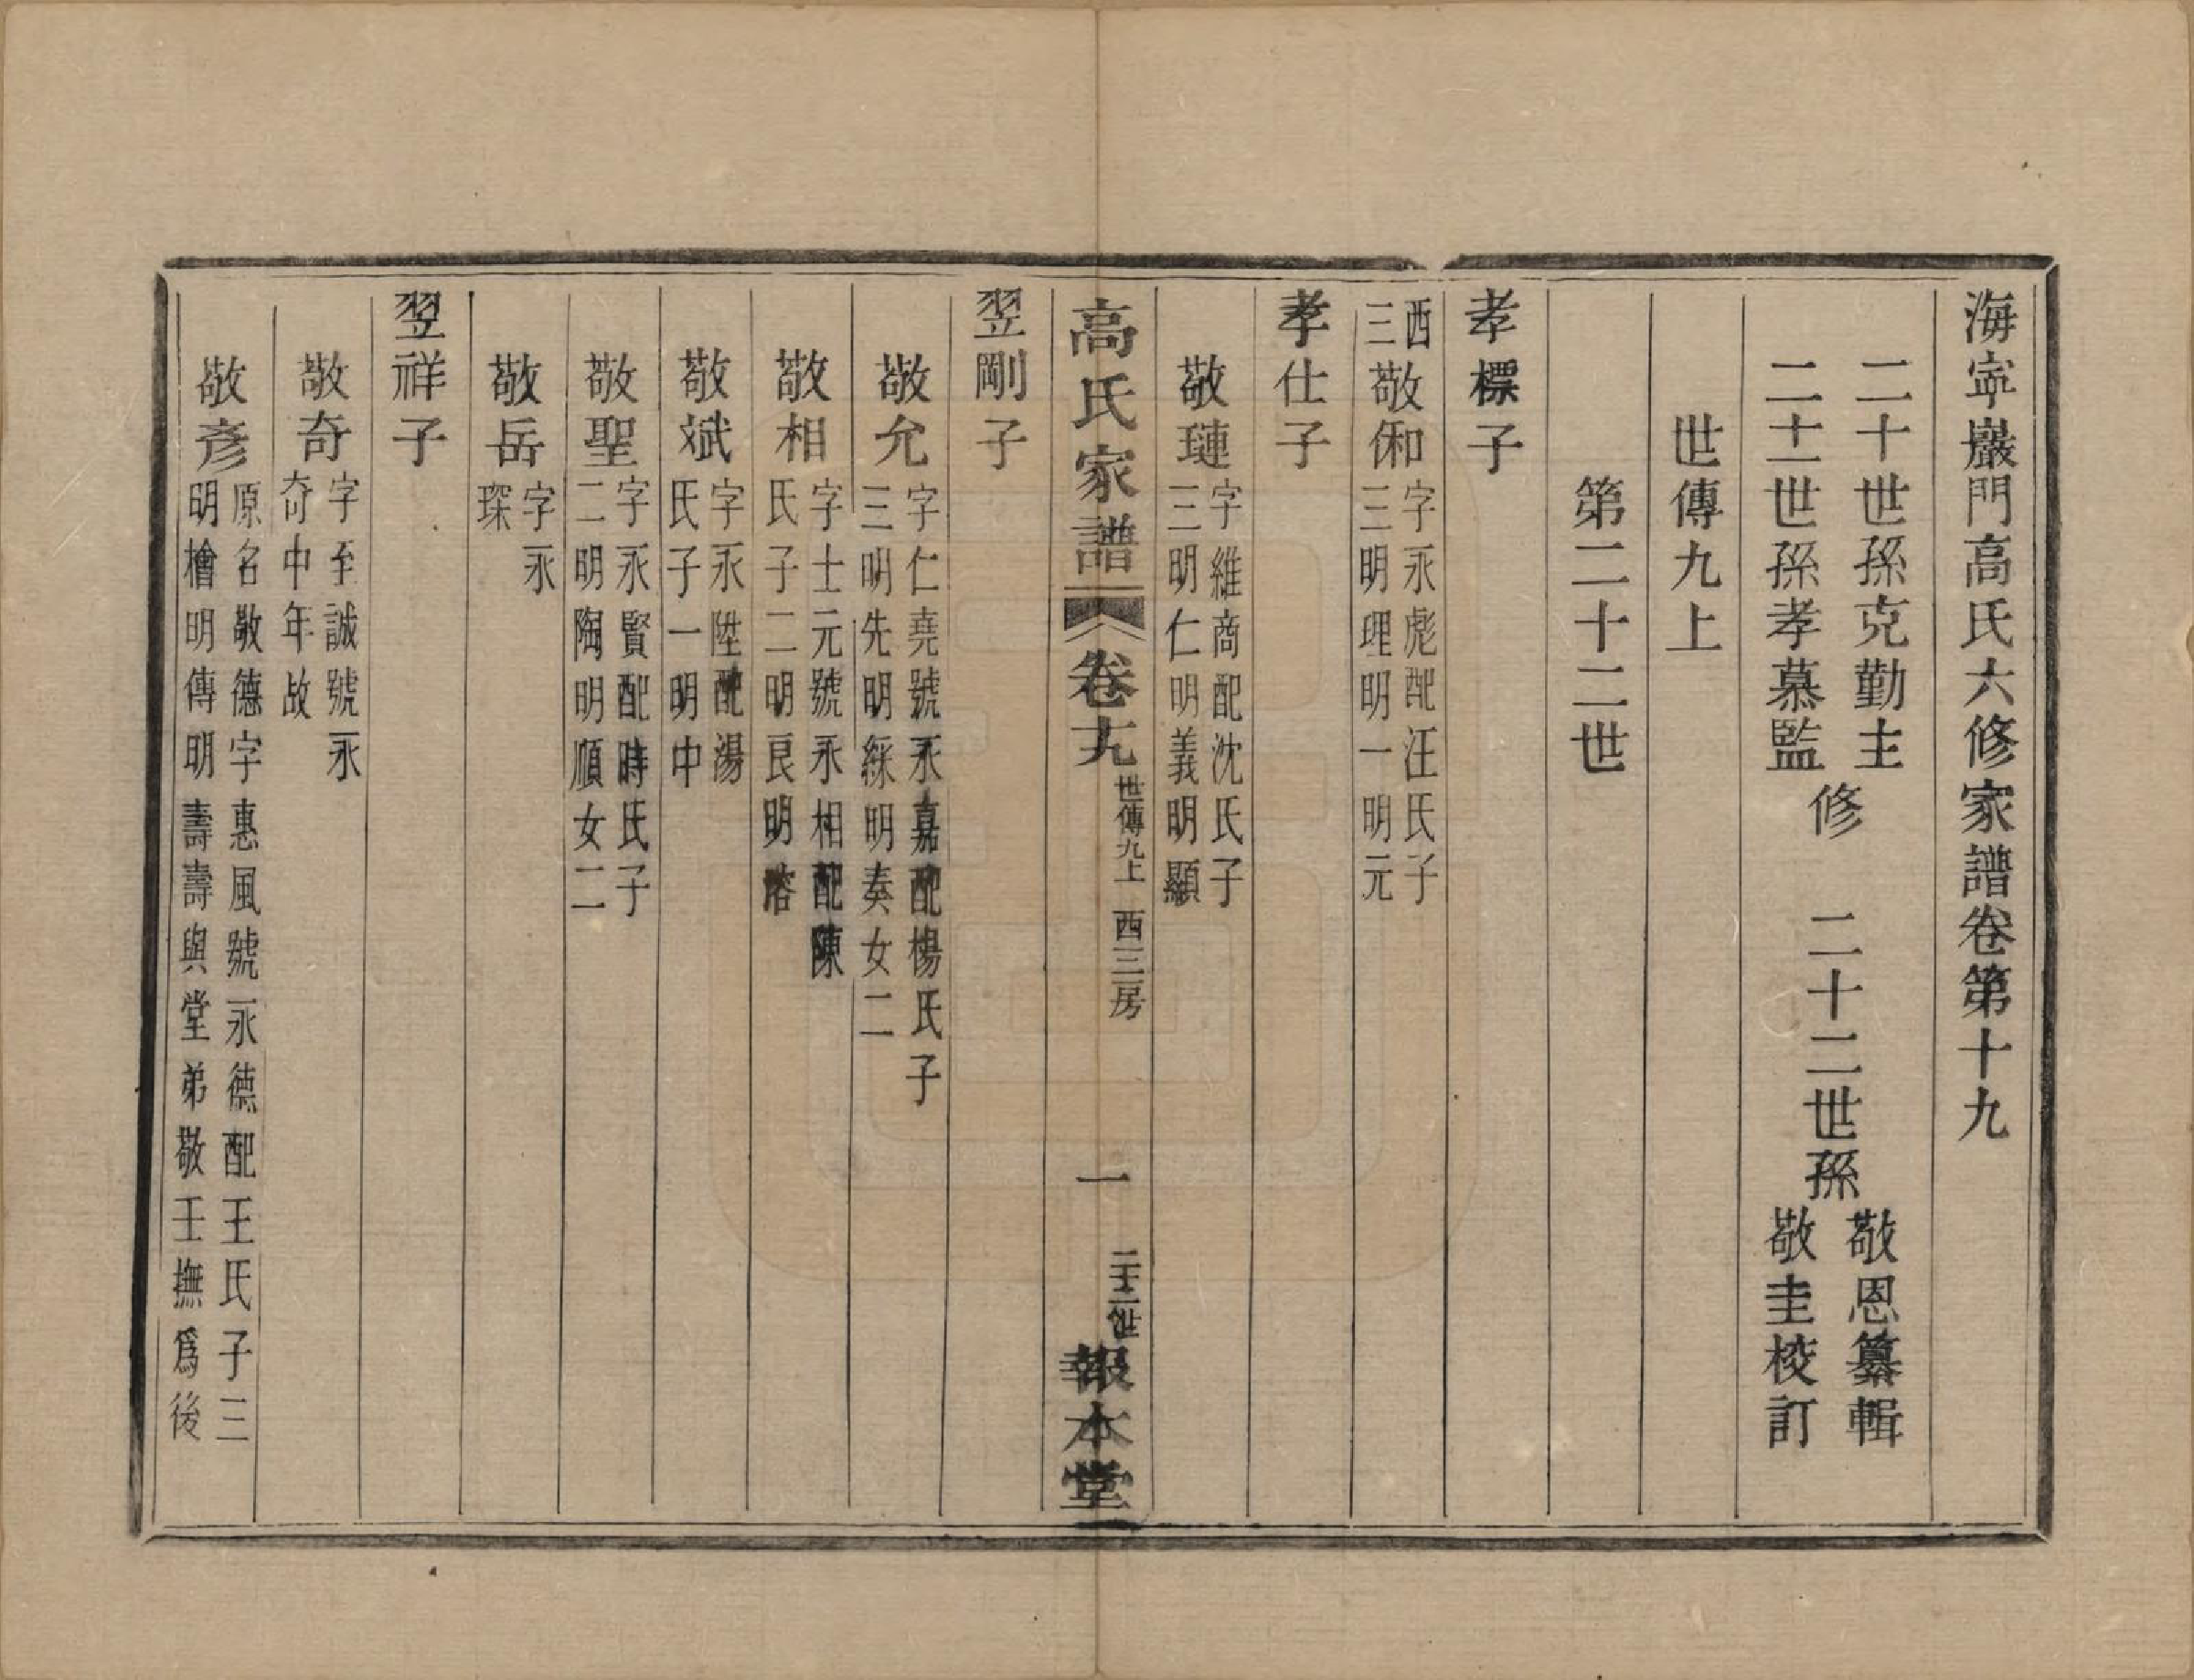 海寧巖門高氏六修家譜卷第十九
二十世孫克勤主
二十一世孫孝慕監
修
二十二世孫
敬恩纂輯
敬圭校訂
世傳九上
第二十二世
孝標子
西三
敬俰
字永彪配汪氏子
三明理明一明元
孝仕子
敬璉
字維商配沈氏子
三明仁明義明顯
高氏家譜
卷十九
世傳九上 西三房
一
二十二世
報本堂
翌剛子
敬允
字仁堯號永嘉配楊氏子
三明先明綵明奏女二
敬相
字士元號永相配陳
氏子二明良明
敬斌
字永陞配湯
氏子一明中
敬聖
字永賢配時氏子
二明陶明順女二
敬岳
字永
琛
翌祥子
敬奇
字至誠號永
奇中年故
敬彥
原名敬德字惠風號永德配王氏子三
明檜明傳明壽壽與堂弟敬王撫爲後